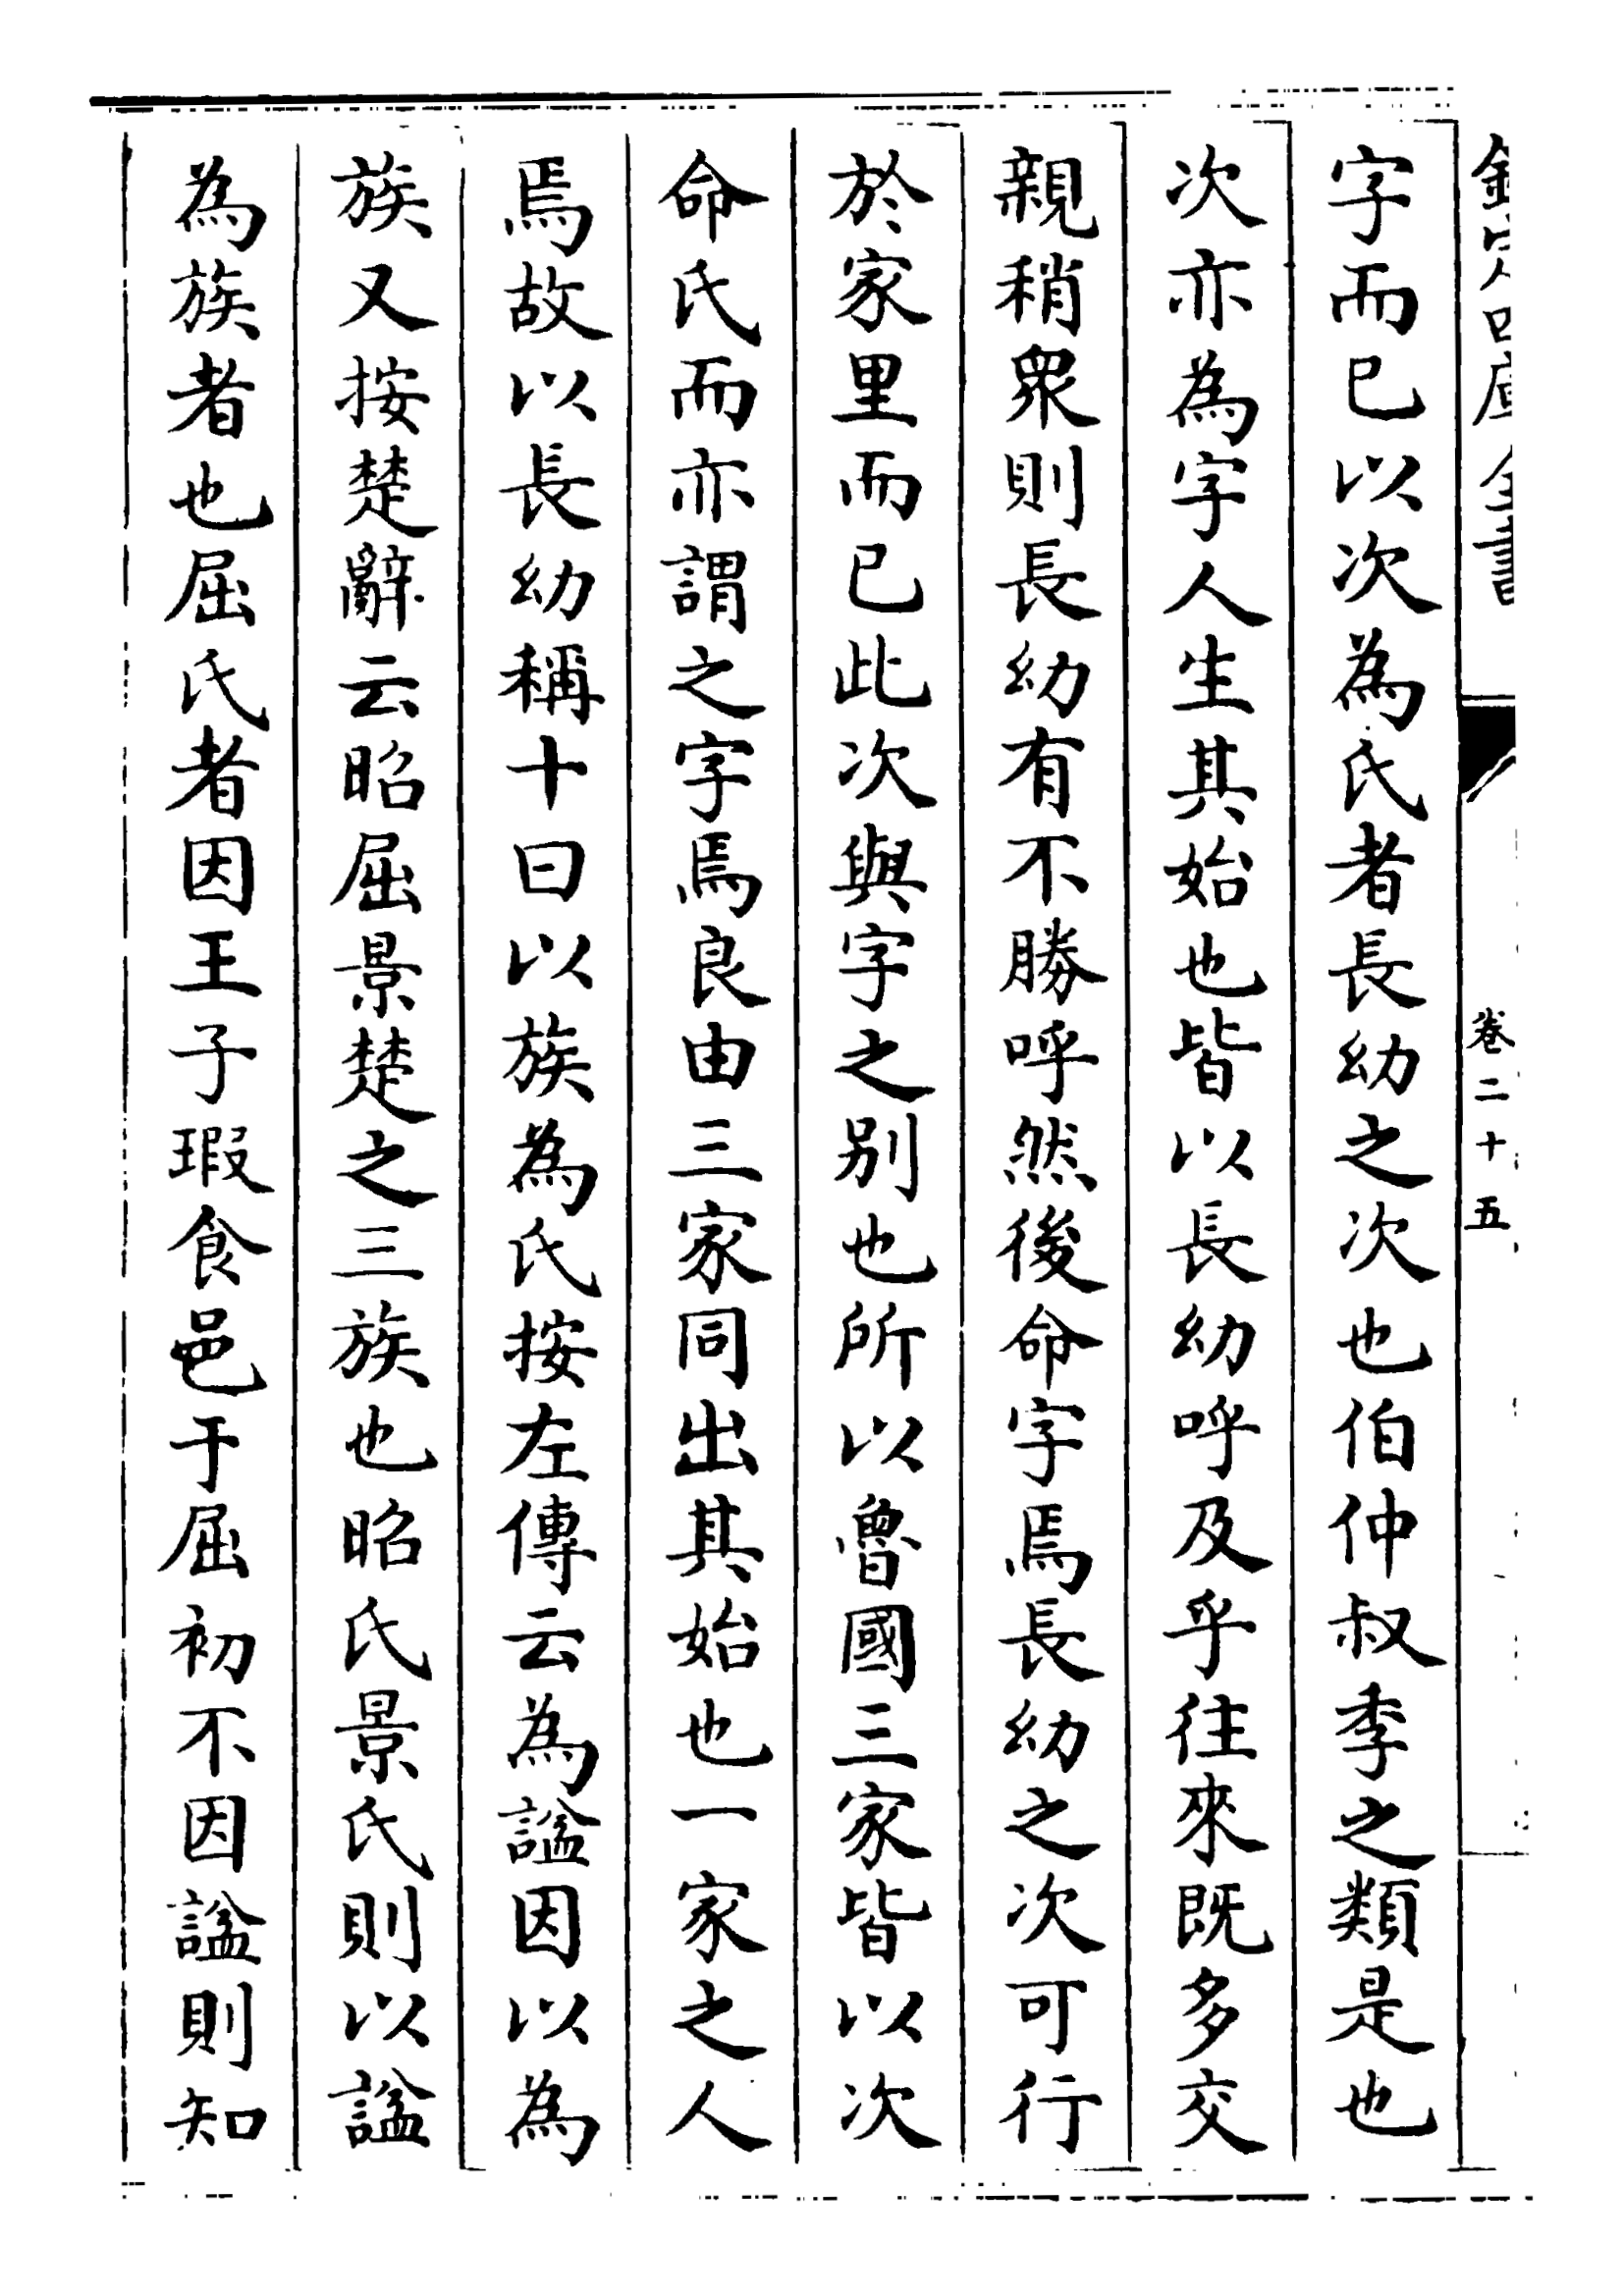 欽定四庫全書
卷二十五
字而已以次為氏者長幼之次也伯仲叔季之類是也
次亦為字人生其始也皆以長幼呼及乎往來既多交
親稍衆則長幼有不勝呼然後命字焉長幼之次可行
於家里而已此次與字之别也所以魯國三家皆以次
命氏而亦謂之字焉良由三家同出其始也一家之人
焉故以長幼稱十曰以族為氏按左傳云為諡因以為
族又按楚辭云昭屈景楚之三族也昭氏景氏則以諡
為族者也屈氏者因王子瑕食邑于屈初不因諡則知